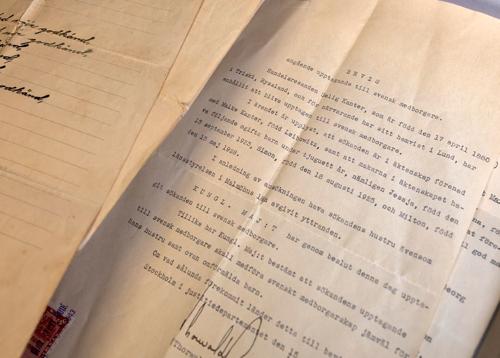 godkänd,
godkänd,
BEVIS
angående upptagande till svensk medborgare.
Handelsresanden Selig Kanter, som är född den 17 april 1900
i Triski, Ryssland, och för närvarande har sitt hemvist i Lund, har
anhållit att bliva upptagen till svensk medborgare.
I ärendet är upplyst, att sökanden är i äktenskap förened
med Malke Kanter, född Leibowitz, samt att makarna i äktenskapet ha-
va följande ogifta barn under tjuguett år, nämligen Jessja, född den
13 september 1923, Simon, född den 18 augusti 1925, och Milton, född
den 15 maj 1928.
I anledning av ansökningen hava sökandens hustru ävensom
länsstyrelsen i Malmöhus län avgivit yttranden.
KUNGL. MAJ:T har genom beslut denna dag uppta-
git sökanden till svensk medborgare.
Tillika har Kungl. Maj:t bestämt att sökandens upptagande
till svensk medborgare skall medföra svenskt medborgarskap jämväl för
hans hustru samt ovan omförmälda barn.
Om vad sålunda förekommit länder detta till bevis.
Stockholm i justitiedepartementet den 15